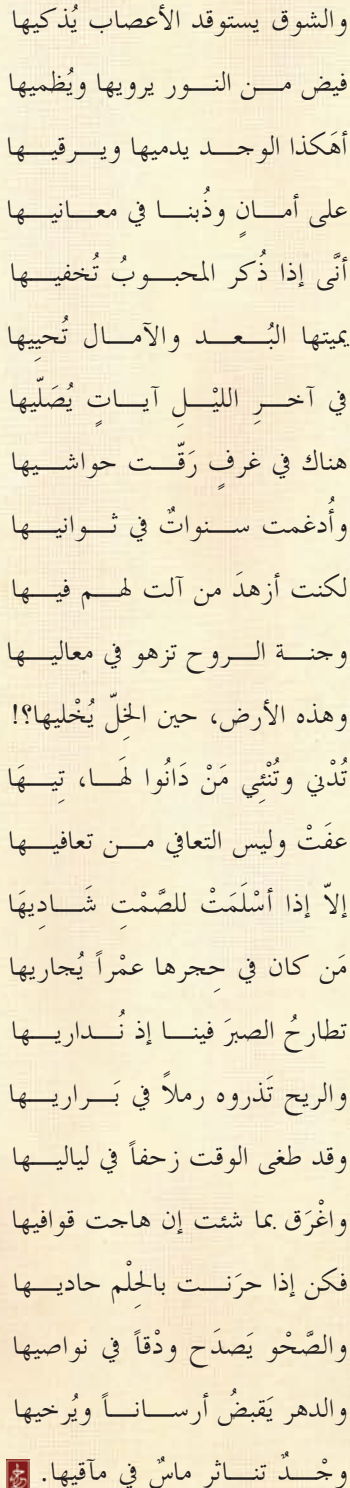 والشوق يستوقد الأعصاب يُذكيها
فيض من النور يرويها ويُظميها
أهَكذا الوجد يدميها ويرقيها
على أمانٍ وذُبنا في معانيها
أنَّى إذا ذُكر المحبوبُ تُخفيها
يميتها البُعد والآمال تُحييها
في آخرِ الليْلِ آياتٍ يُصَلّيها
هناك في غرفٍ رَقّت حواشيها
وأُدغمت سنواتٌ في ثوانيها
لكنت أزهدَ من آلت لهم فيها
وجنة الروح تزهو في معاليها
وهذه الأرض، حين الخلّ يُخْليها؟!
تُدْني وتُنْئِي مَنْ دَانُوا لَهَا، تِيهَا
عفَتْ وليس التعافي من تعافيها
إلاّ إذا أسْلَمَتْ للصَّمْتِ شَادِيهَا
مَن كان في حِجرها عمْراً يُجاريها
تطارحُ الصبرَ فينا إذ نُداريها
والريح تَذروه رملاً في بَراريها
وقد طغى الوقت زحفاً في لياليها
واغْرَق بما شئت إن هاجت قوافيها
فكن إذا حرَنت بالحِلْم حاديها
والصَّحْو يَصدَح ودْقاً في نواصيها
والدهر يَقبضُ أرساناً ويُرخيها
وجْدٌ تناثر ماسٌ في مآقيها.